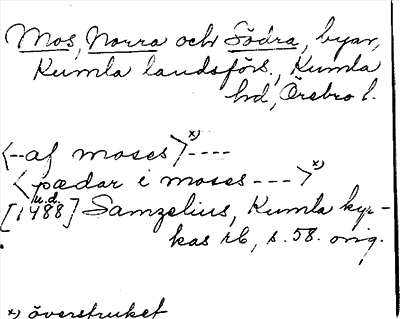 Mos, Norra och Södra, byar,
Kumla landsförs., Kumla
hd, Örebro l.
<--af moses>x)----
<pædar i moses --->x)
u.d.
[1488] Samzelius, Kumla kyr-
kas rb, s. 58. orig.
x) överstruket